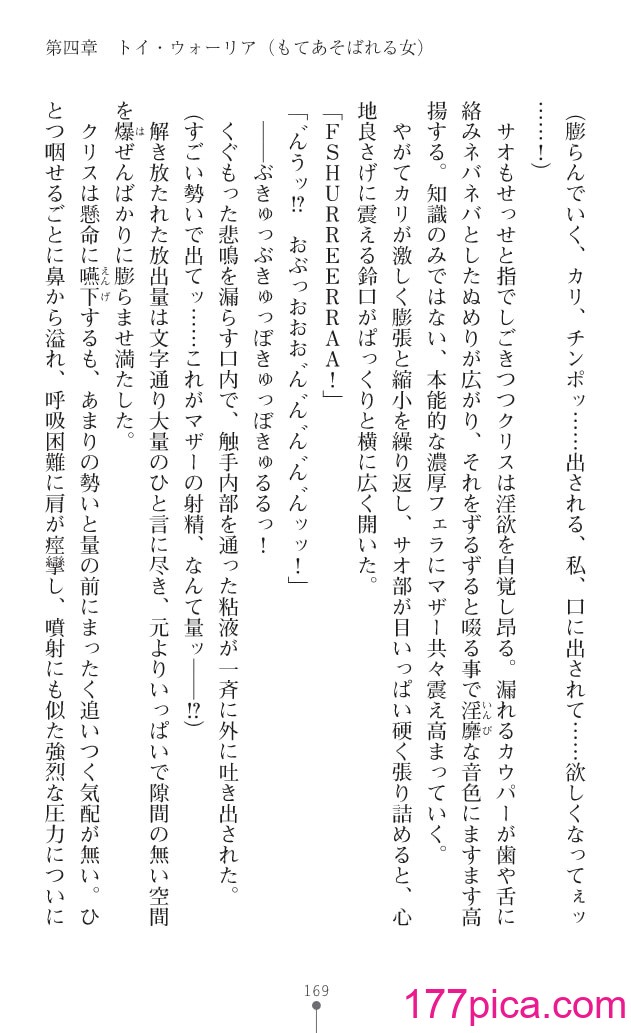 第四章　トイ・ウォーリア（もてあそばれる女）
（膨らんでいく、カリ、チンポッ……出される、私、口に出されて……欲しくなってぇッ
……！）
　サオもせっせと指でしごきつつクリスは淫欲を自覚し昂る。漏れるカウパーが歯や舌に
絡みネバネバとしたぬめりが広がり、それをずるずると啜る事で淫靡な音色にますます高
揚する。知識のみではない、本能的な濃厚フェラにマザー共々震え高まっていく。
　やがてカリが激しく膨張と縮小を繰り返し、サオ部が目いっぱい硬く張り詰めると、心
地良さげに震える鈴口がぱっくりと横に広く開いた。
「ＦＳＨＵＲＲＥＥＲＲＡＡ！」
「ん゛うッ!?　おぶっおおおん゛ん゛ん゛ん゛ん゛ッッ！」
　――ぶきゅっぶきゅっぼきゅっぼきゅるるっ！
　くぐもった悲鳴を漏らす口内で、触手内部を通った粘液が一斉に外に吐き出された。
（すごい勢いで出てッ……これがマザーの射精、なんて量ッ――!?）
　解き放たれた放出量は文字通り大量のひと言に尽き、元よりいっぱいで隙間の無い空間
を爆ぜんばかりに膨らませ満たした。
　クリスは懸命に嚥下するも、あまりの勢いと量の前にまったく追いつく気配が無い。ひ
とつ咽せるごとに鼻から溢れ、呼吸困難に肩が痙攣し、噴射にも似た強烈な圧力についに
169
177pica.com